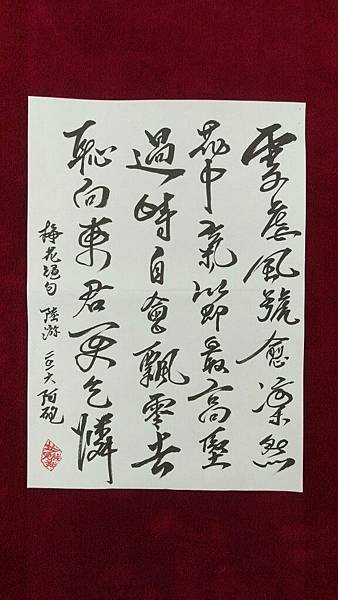 雪虐風號愈凜然
花中氣節最高堅
過時自會飄零去
恥向東君更乞憐
梅花絕句 陸游 二〇一六 阿砲